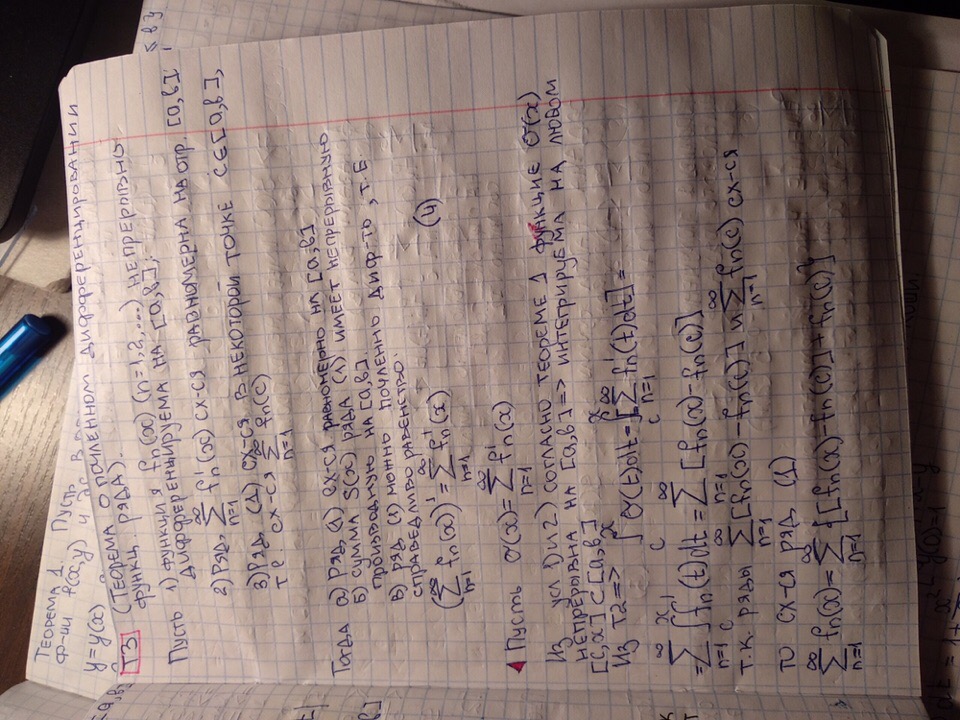 ТЕОРЕМА 1. ПУСТЬ
Ф-ИИ f(x,y) И
y=y(x)
T3 (ТЕОРЕМА О ПОЧЛЕННОМ ДИФФЕРЕНЦИРОВАНИИ
ФУНКЦ. РЯДА).
ПУСТЬ 1) ФУНКЦИЯ fn(x) (n=1,2,...) НЕПРЕРЫВНО
ДИФФЕРЕНЦИРУЕМА НА [a,b];
2) РЯД, ∑_{n=1}^{∞} f'n(x) СХ-СЯ РАВНОМЕРНА НА ОТР. [a,b];
3) РЯД (1) СХ-СЯ В НЕКОТОРОЙ ТОЧКЕ C∈[a,b],
Т.Е. СХ-СЯ ∑_{n=1}^{∞} fn(c)
ТОГДА а) РЯД (1) СХ-СЯ РАВНОМЕРНО НА [a,b]
Б) СУММА S(x) РЯДА (1) ИМЕЕТ НЕПРЕРЫВНУЮ
ПРОИЗВОДНУЮ НА [a,b].
В) РЯД (1) МОЖНО ПОЧЛЕННО ДИФ-ТЬ, Т.Е.
СПРАВЕДЛИВО РАВЕНСТВО:
(∑_{n=1}^{∞} fn(x))' = ∑_{n=1}^{∞} f'n(x) (4)
ПУСТЬ σ(x)=∑_{n=1}^{∞} f'n(x)
ИЗ УСЛ 1) и 2) СОГЛАСНО ТЕОРЕМЕ 1 ФУНКЦИЕ σ(x)
НЕПРЕРЫВНА НА [a,b] => ИНТЕГРИРУЕМА НА ЛЮБОМ
[c,x]⊂[a,b]
ИЗ Т2 => ∫_{c}^{x} σ(t)dt = ∫_{c}^{x} [∑_{n=1}^{∞} f'n(t)dt] =
= ∑_{n=1}^{∞} ∫_{c}^{x} f'n(t)dt = ∑_{n=1}^{∞} [fn(x)-fn(c)]
Т.К. РЯДЫ ∑_{n=1}^{∞} [fn(x)-fn(c)] и ∑_{n=1}^{∞} fn(c) СХ-СЯ
ТО СХ-СЯ РЯД (1)
∑_{n=1}^{∞} fn(x) = ∑_{n=1}^{∞} {[fn(x)-fn(c)]+fn(c)}
y(0)=1